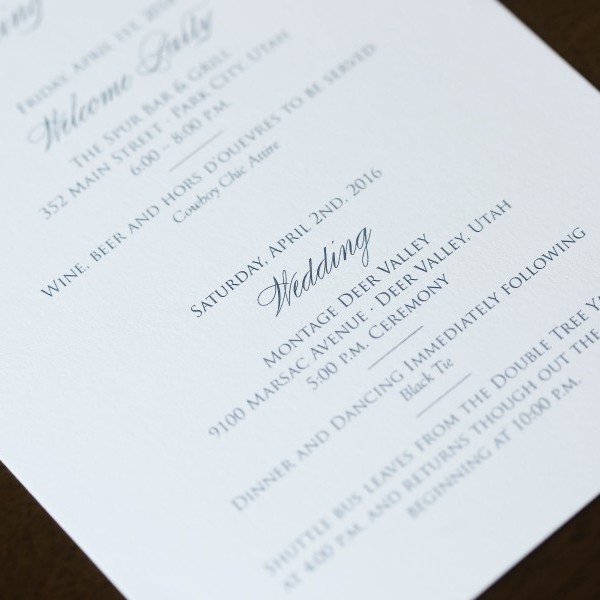 Friday, April 1st, 2016
Welcome Party
The Spur Bar & Grill
352 Main Street · Park City, Utah
6:00 – 8:00 p.m.
Wine, beer and hors d'ouevres to be served
Cowboy Chic Attire
Saturday, April 2nd, 2016
Wedding
Montage Deer Valley
9100 Marsac Avenue · Deer Valley, Utah
5:00 p.m. Ceremony
Dinner and Dancing Immediately following
Black Tie
Shuttle bus leaves from the Double Tree
at 4:00 p.m. and returns though out the
beginning at 10:00 p.m.